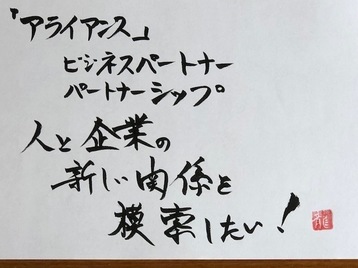 「アライアンス」
ビジネスパートナー
パートナーシップ
人と企業の
新しい関係を
模索したい!